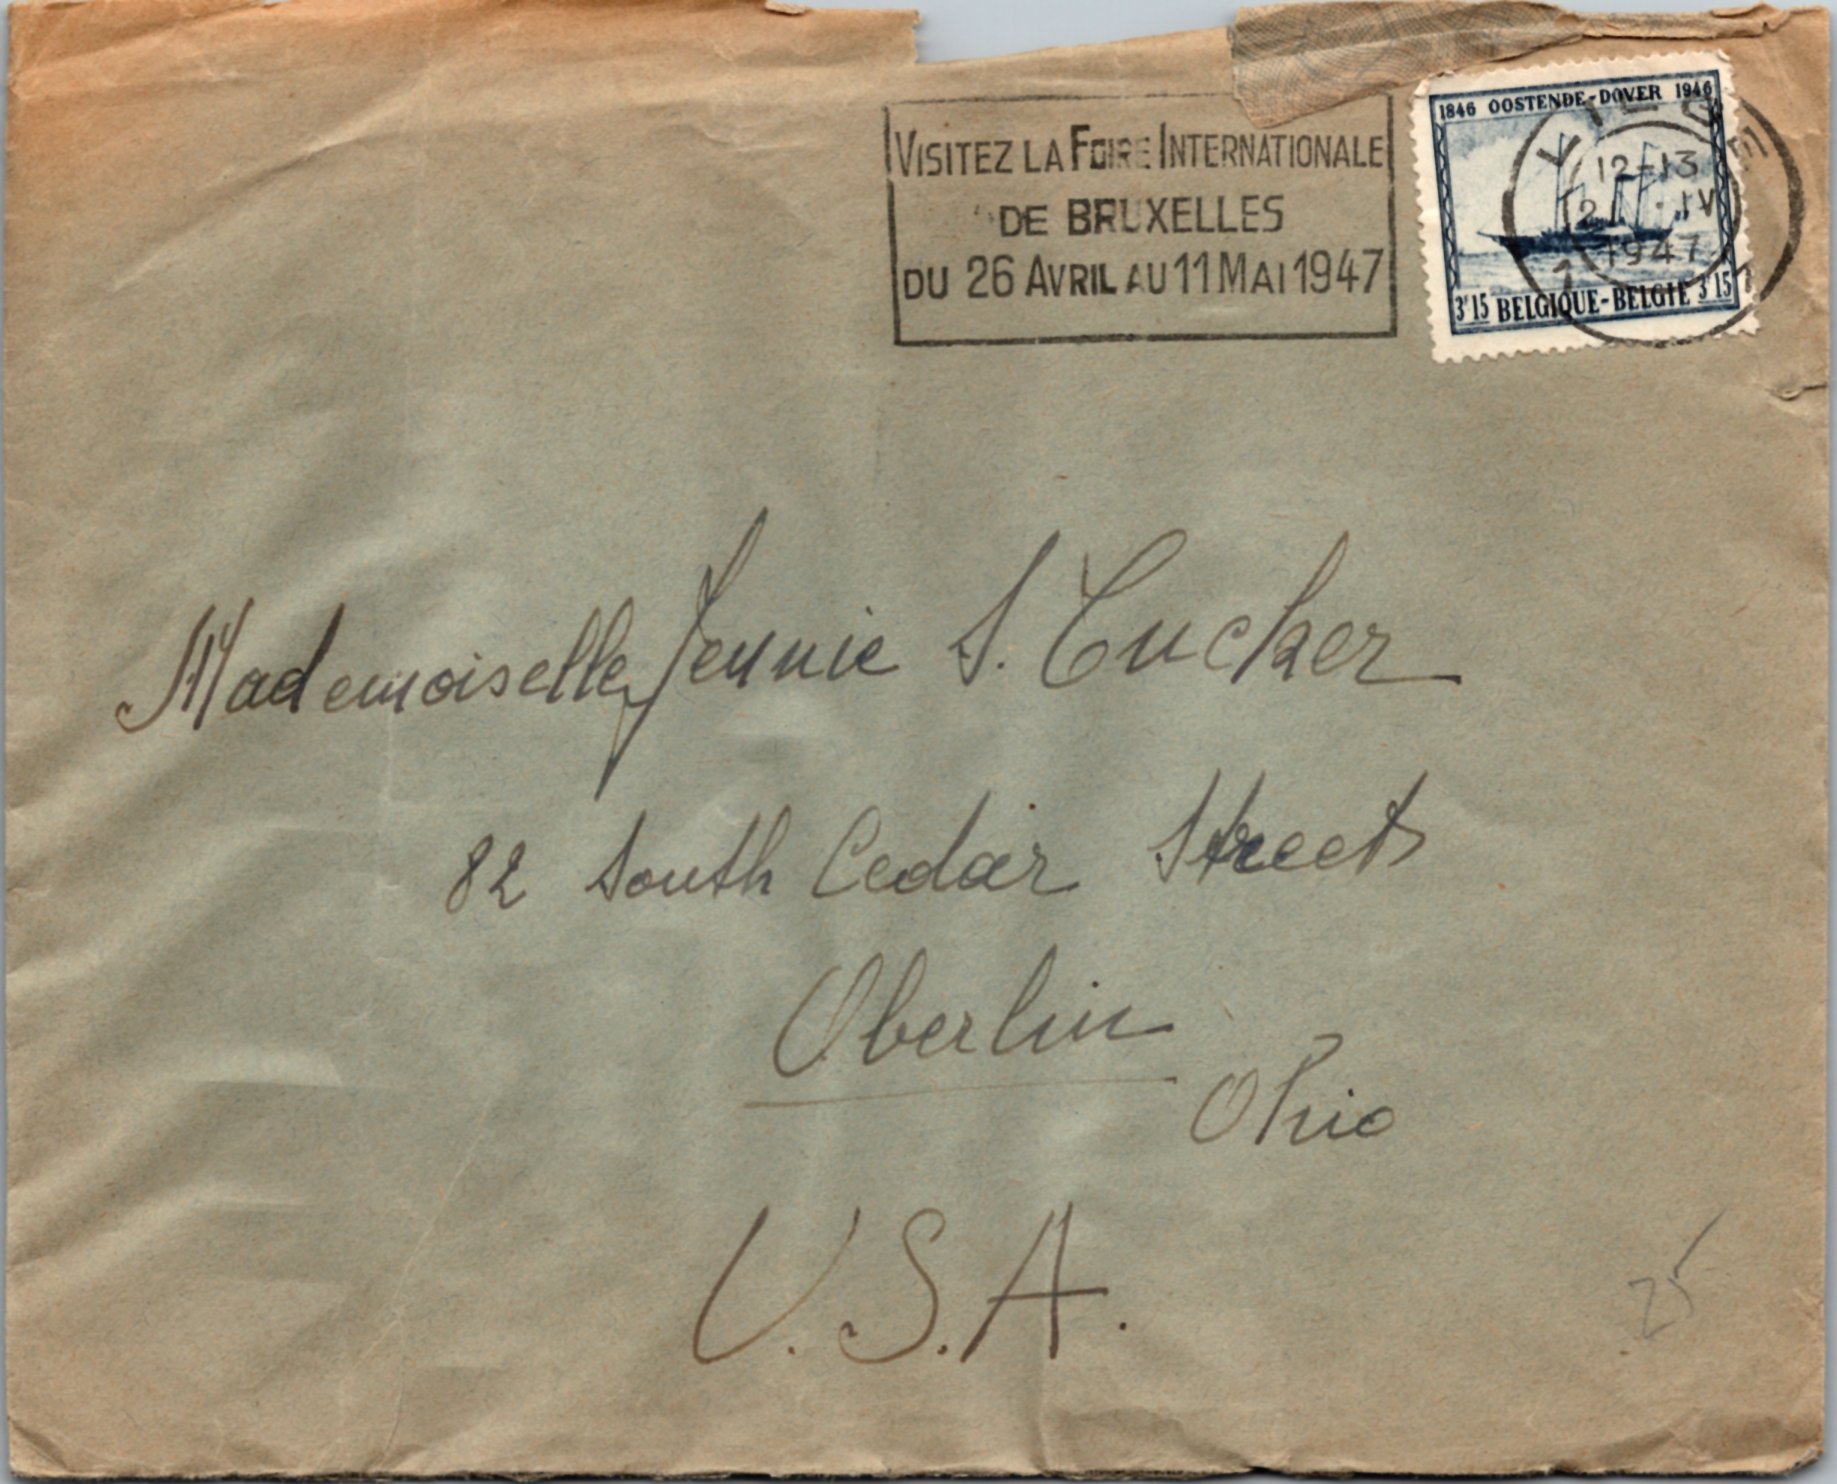 VISITEZ LA FOIRE INTERNATIONALE
DE BRUXELLES
DU 26 AVRIL AU 11 MAI 1947
1846 OOSTENDE-DOVER 1946
3F15 BELGIQUE-BELGIË 3F15
12-13
IV
1947
Mademoiselle Jennie S. Tucker
82 South Cedar Street
Oberlin
Ohio
U.S.A.
25